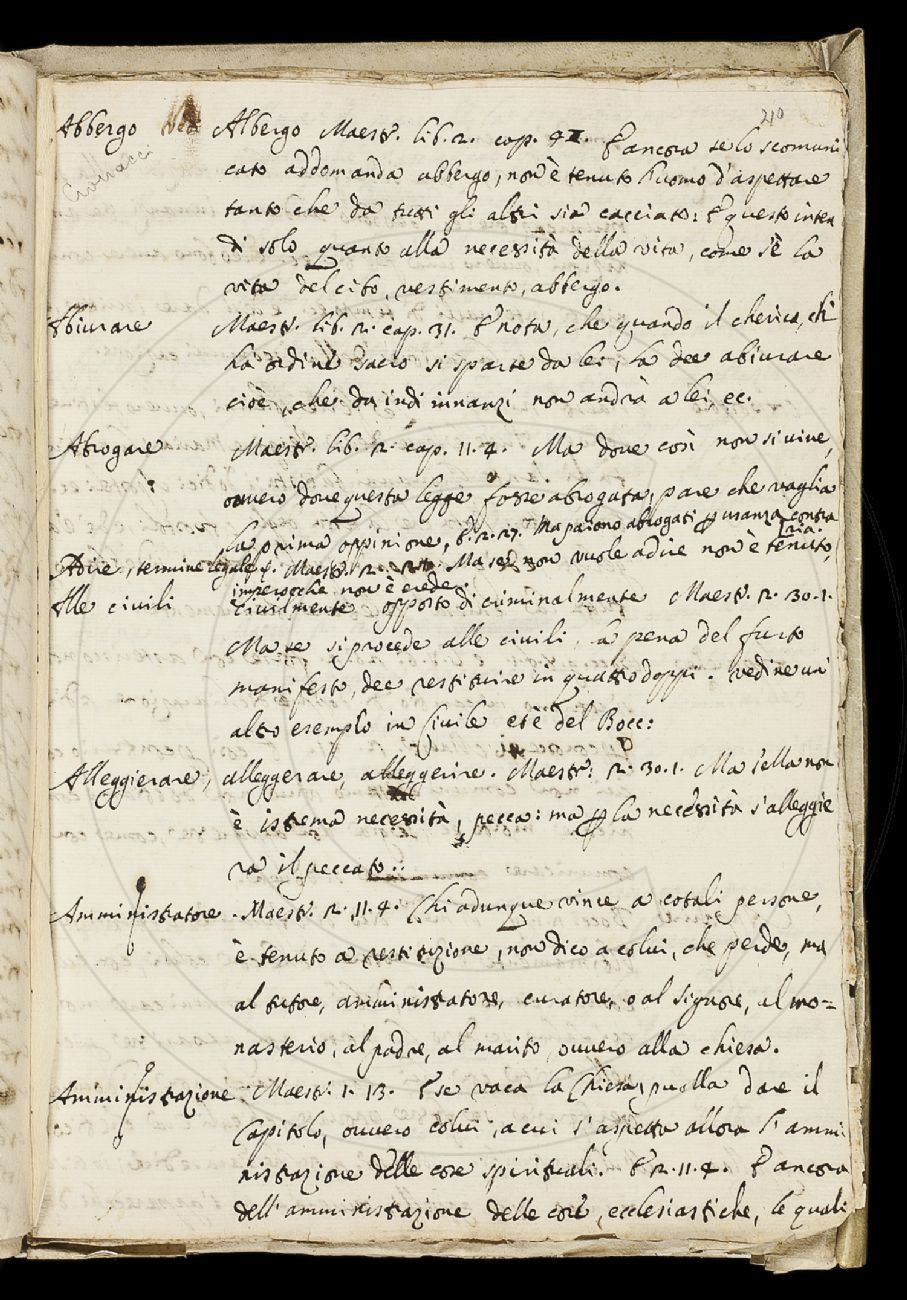 210
Abbergo Ved Albergo Maestr. lib. 2. cap. 41. E ancora se lo scomuni
Cionacci
cato addomanda abbergo, non è tenuto l'uomo d'aspettare
tanto che da tutti gli altri sia cacciato: E questo inten
di solo quanto alla necessità della vita, come s'è la
vita del cibo, vestimento, abbergo.
Abiurare Maestr. lib. 2. cap. 31. E nota, che quando il cherico, ch'
ha ordine sacro si sparte da lei, la dee abiurare
cioè, che da indi innanzi non andrà a lei, ec.
Abrogare Maestr. lib. 2. cap. 11. 4. Ma dove così non si vive,
ovvero dove questa legge fosse abrogata, pare che vaglia
la prima oppinione, E. 2. 27. Ma paiono abrogati ꝑ usanza contra
ria.
Adire, termine legale f. Maestr. 2. Ma se non vuole adire non è tenuto,
imperocchè non è erede.
Alle civili Civilmente opposto di criminalmente Maestr. 2. 30. 1.
Ma se si procede alle civili, la pena del furto
manifesto, dee restituire in quattro doppi. vedine un
altro esempio in Civile et è del Bocc:
Alleggierare, alleggerare, alleggerire. Maestr: 2. 30. 1. Ma s'ella non
è istrema necessità, pecca: ma ꝑ la necessità s'alleggie
ra il peccato.
Amministratore. Maestr. 2. 11. 4. Chi adunque vince a cotali persone,
è tenuto a restituzione, non dico a colui, che perde, ma
al tutore, amministratore, curatore, o al signore, al mo=
nasterio, al padre, al marito, ovvero alla chiesa.
Amministrazione Maestr. 1. 13. E se vaca la Chiesa, puolla dare il
Capitolo, ovvero colui, a cui s'aspetta allora l'ammi
nistrazione delle cose spirituali. E 2. 11. 4. E ancora
dell'amministrazione delle cose, ecclesiastiche, le quali